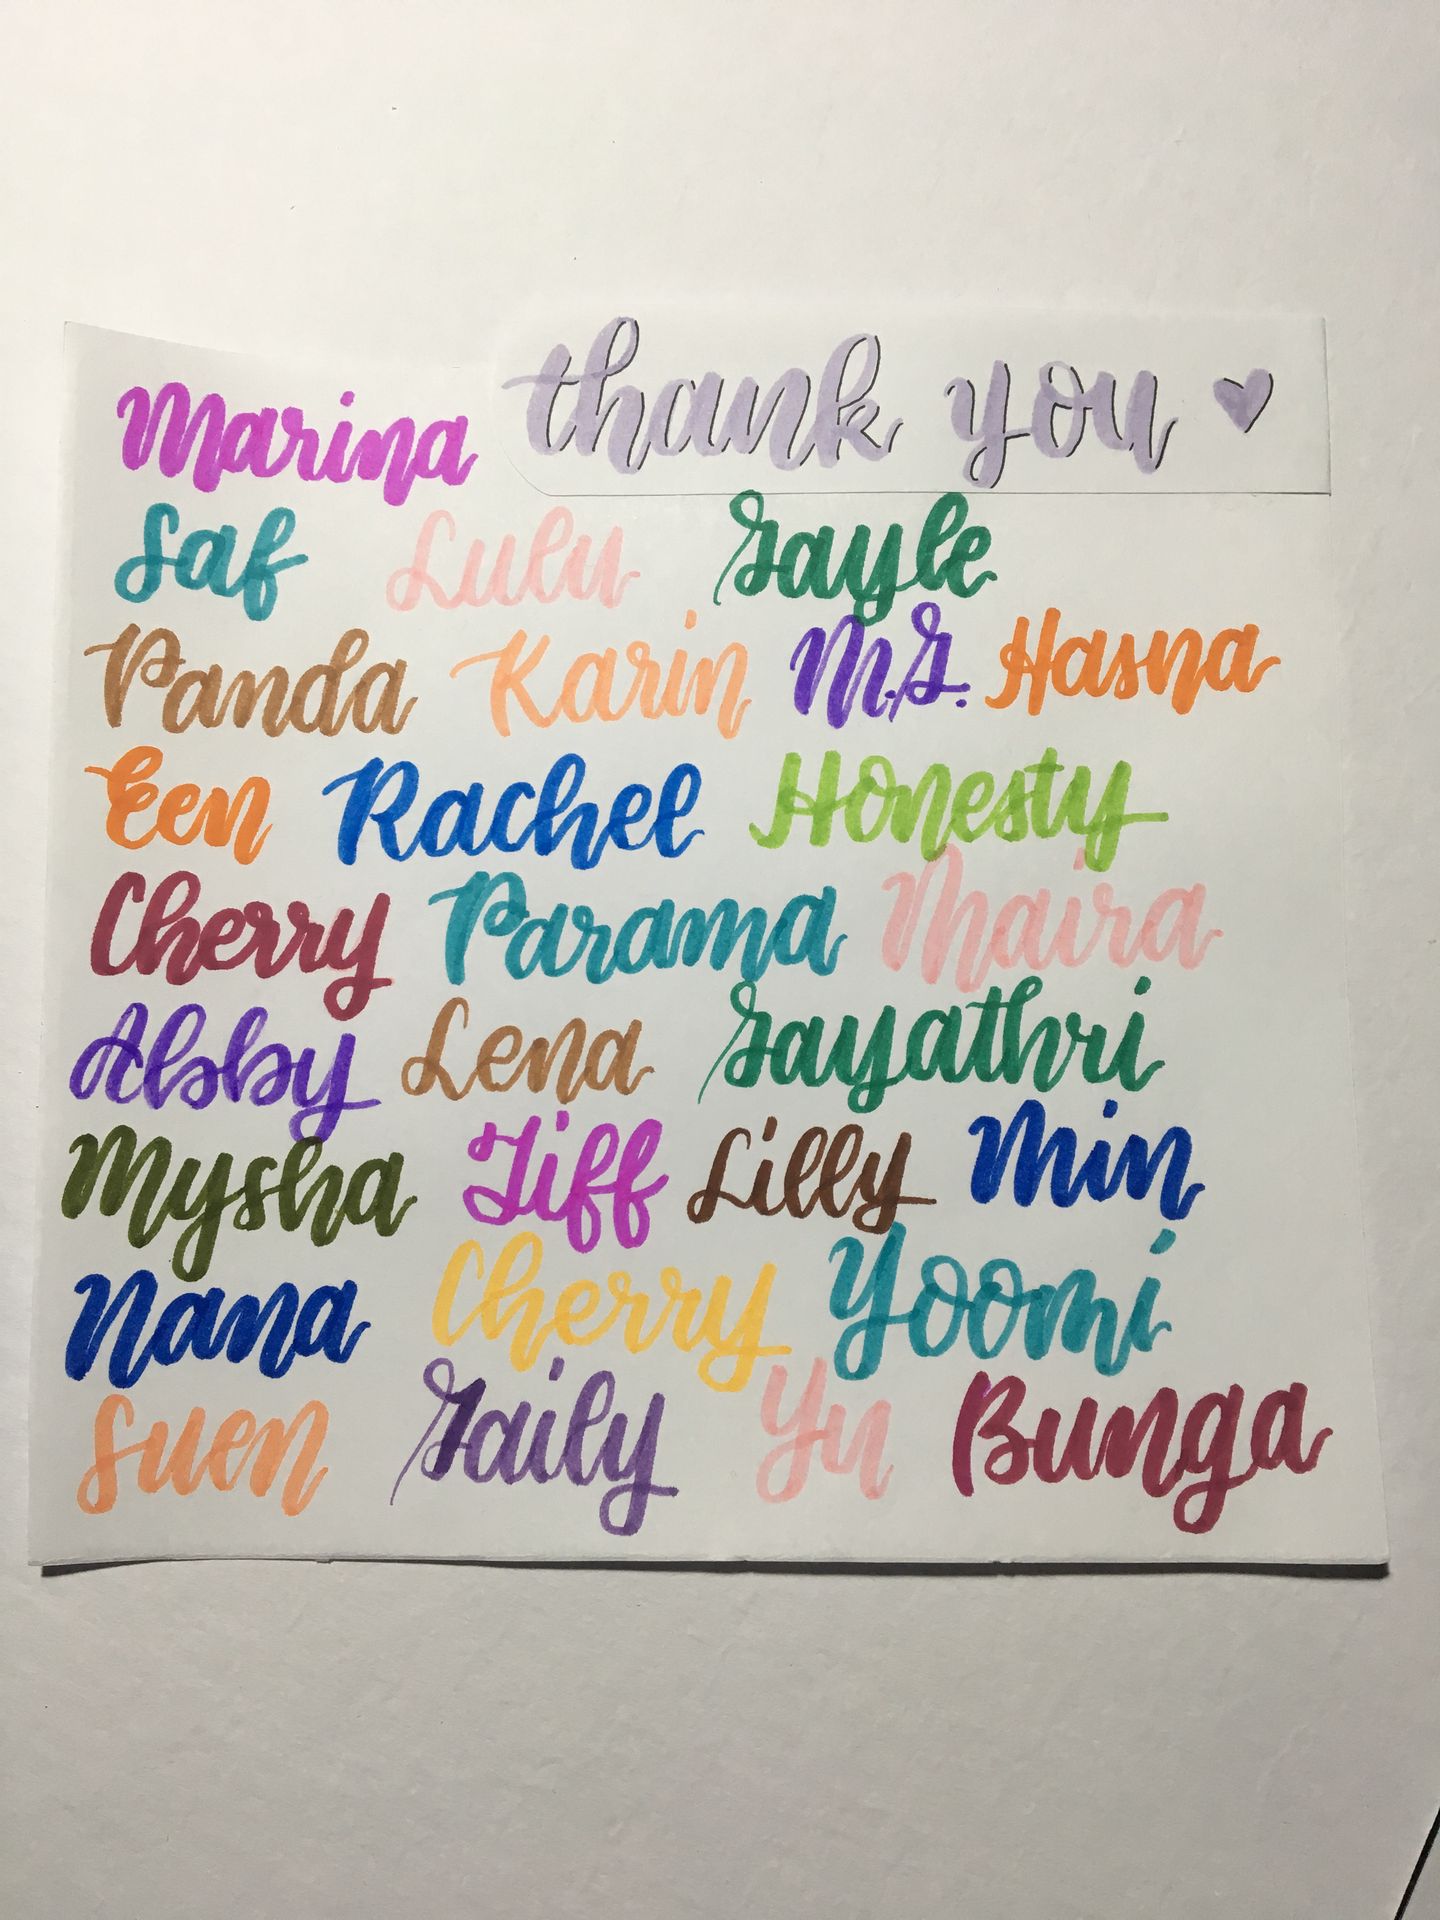 thank you ♥
Marina
Saf Lulu Gayle
Panda Karin M.G. Hasna
Een Rachel Honesty
Cherry Parama Maira
Abby Lena Gayathri
Mysha Tiff Lilly Min
Nana Cherry Yoomi
Suen Gaily Yu Bunga